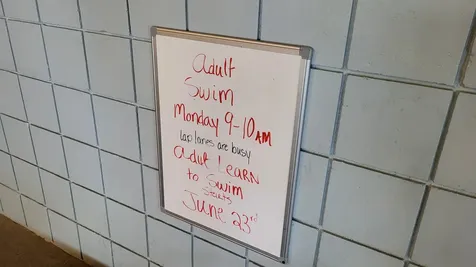 adult
Swim
Monday 9-10 AM
Lap lanes are busy
adult LEARN
to Swim
Starts
June 23rd